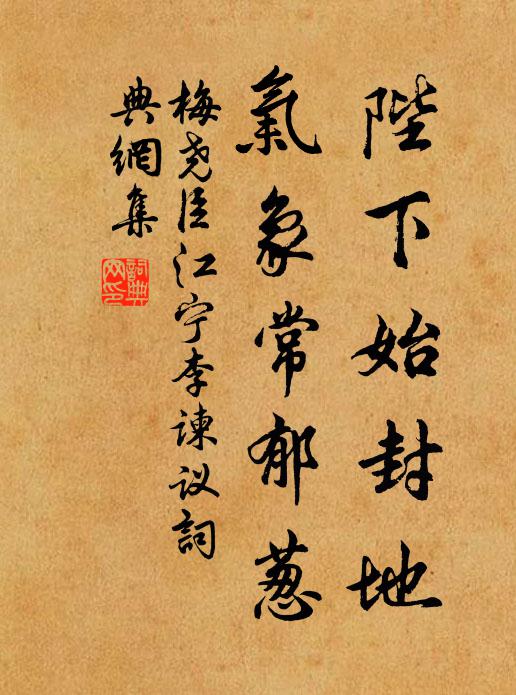 陛下始封地
氣象常郁葱
梅尧臣江宁李谏议詞
典網集
詞典網印